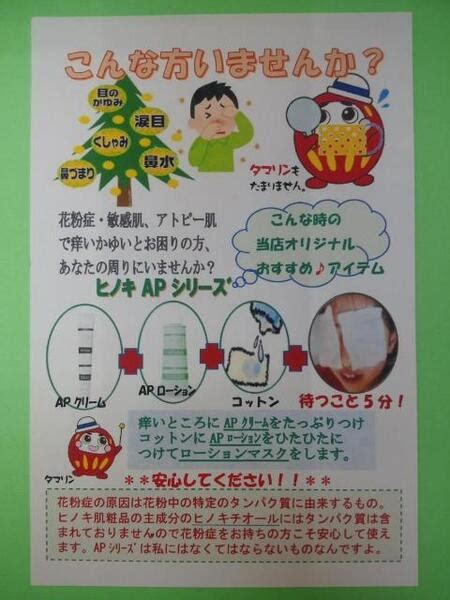 こんな方いませんか？
目の
かゆみ
涙目
くしゃみ
鼻水
鼻づまり
タマリンも
たまりません。
花粉症・敏感肌、アトピー肌
で痒いかゆいとお困りの方、
あなたの周りにいませんか？
こんな時の
当店オリジナル
おすすめ♪アイテム
ヒノキ AP シリーズ
AP クリーム
AP ローション
コットン
待つこと５分！
痒いところに AP クリームをたっぷりつけ
コットンに AP ローションをひたひたに
つけてローションマスクをします。
タマリン
＊＊安心してください！！＊＊
花粉症の原因は花粉中の特定のタンパク質に由来するもの。
ヒノキ肌粧品の主成分のヒノキチオールにはタンパク質は含
まれておりませんので花粉症をお持ちの方こそ安心して使え
ます。AP シリーズは私にはなくてはならないものなんですよ。